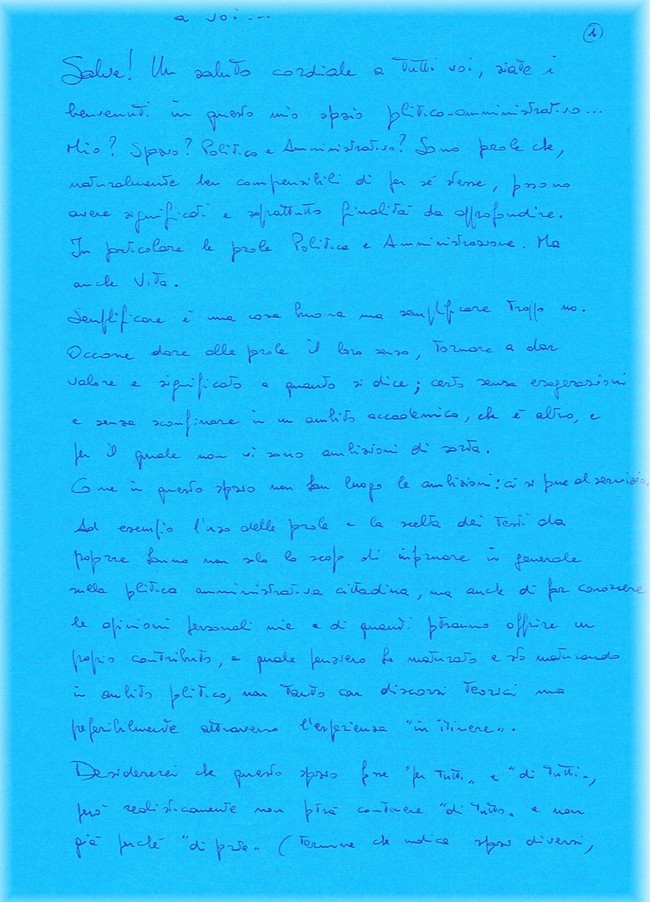 a voi...
1
Salve! Un saluto cordiale a tutti voi, siate i
benvenuti in questo mio spazio politico-amministrativo...
Mio? Spazio? Politico e Amministrativo? Sono parole che,
naturalmente ben comprensibili di per sé stesse, possono
avere significati e soprattutto finalità da approfondire.
In particolare le parole Politica e Amministrazione. Ma
anche Vita.
Semplificare è una cosa buona ma semplificare troppo no.
Occorre dare alle parole il loro senso, tornare a dar
valore e significato a quanto si dice; certo senza esagerazioni
e senza sconfinare in un ambito accademico, che è altro, e
per il quale non vi sono ambizioni di sorta.
Come in questo spazio non han luogo le ambizioni: ci si pone al servizio.
Ad esempio l'uso delle parole e la scelta dei testi da
proporre hanno non solo lo scopo di informare in generale
sulla politica amministrativa cittadina, ma anche di far conoscere
le opinioni personali mie e di quanti potranno offrire un
proprio contributo, e quale pensiero ho maturato e sto maturando
in ambito politico, non tanto con discorsi teorici ma
preferibilmente attraverso l'esperienza "in itinere".
Desidererei che questo spazio fosse "per tutti" e "di tutti",
però realisticamente non potrà contenere "di tutto" e non
già perché "di parte" (termine che indica spazi diversi,